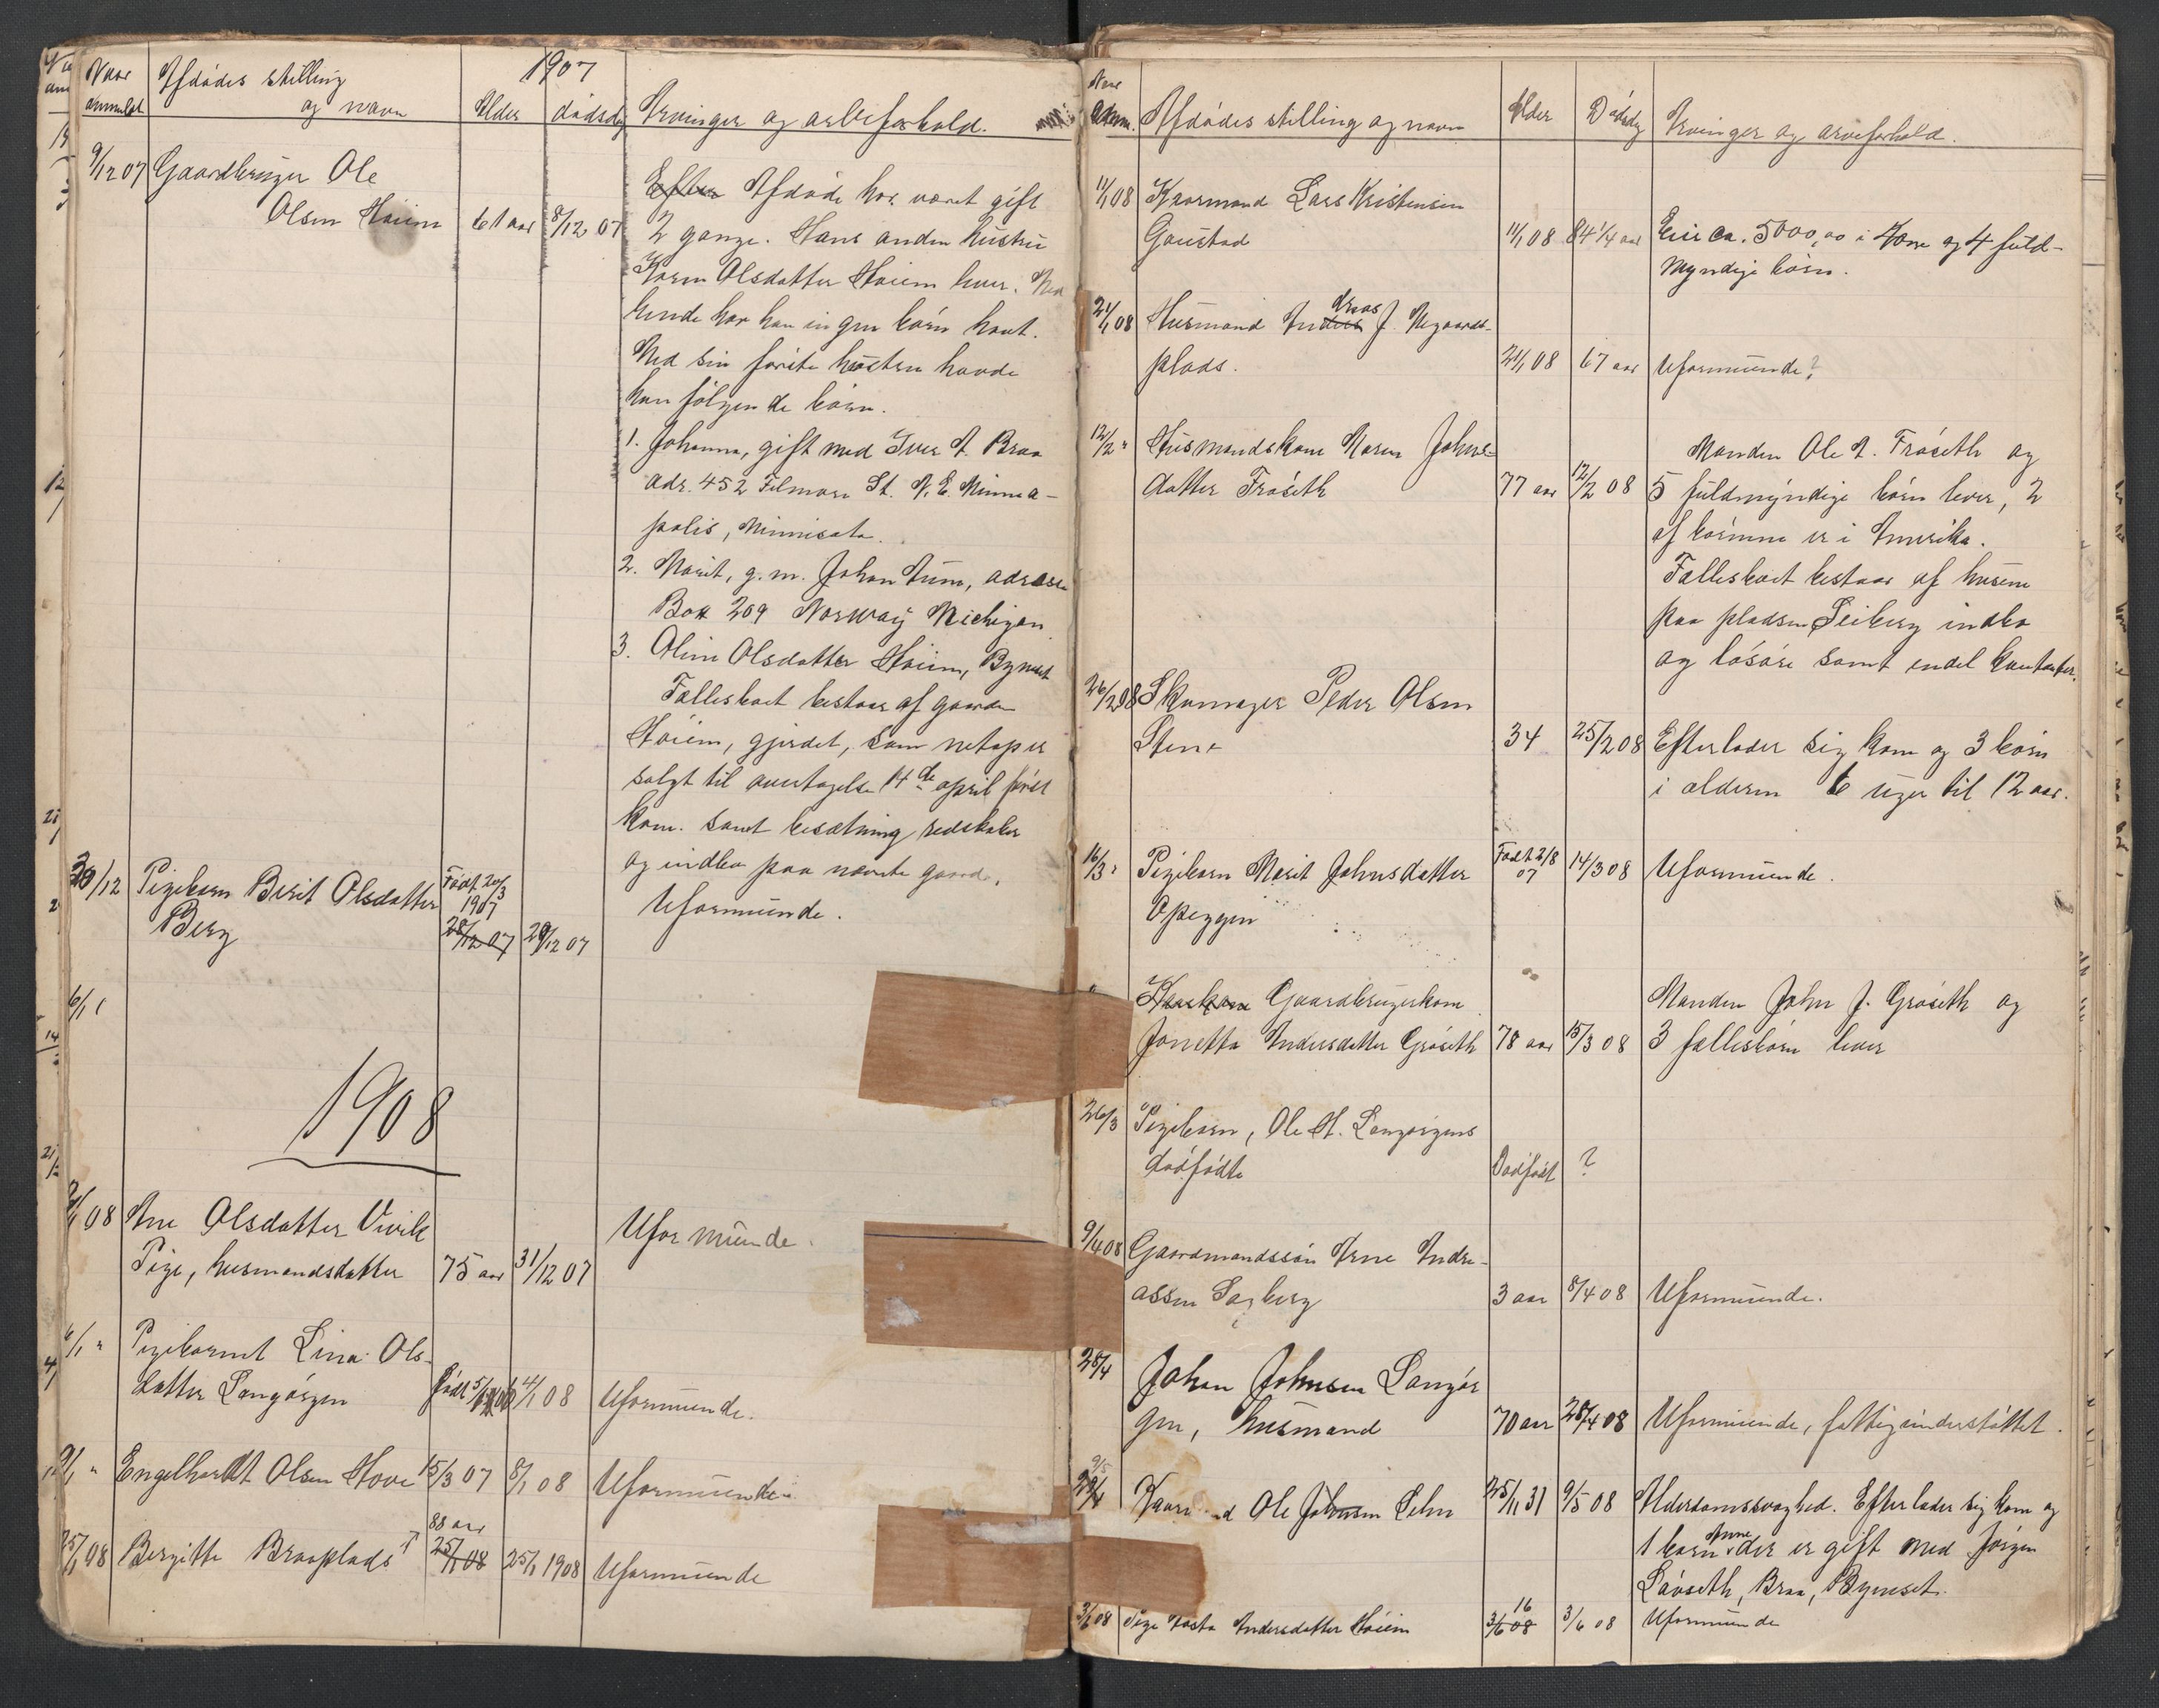 1907
Naar Afdødes stilling
anmeldt og navn Alder dødsdag Arvinger og arveforhold.
9/12 07 Gaardbruger Ole
Olsen Høiem 61 aar 8/12 07
Efter Afdøde har været gift
2 gange. Hans anden hustru
Karen Olsdatter Høiem lever. Med
hende har han ingen børn havt.
Med sin første hustru havde
han følgende børn.
1. Johanna, gift med Iver A. Braa
adr. 452 Filmore St. N. E. Minnea-
polis, Minnisota.
2. Marit, g. m. Johan Aune, adresse
Box 209 Norway Michigan
3. Oline Olsdatter Høiem, Bynæset
Fælleskoet bestaar af gaarden
Høiem, gjerdet, som netop er
solgt til overtagelse 14de april først
kom. samt besætning redskaber
og indbo paa nævnte gaard.
30/12 Pigebarn Berit Olsdatter Født 20/3
1907
Berg 28/12 07 29/12 07 Uformuende.
6/1
1908
2/1 08 Ane Olsdatter Vivik Uformuende.
Pige, husmandsdatter 75 aar 31/12 07
6/1 " Pigebarnet Lina Ols-
datter Langørgen Født 5/12 06 4/1 08 Uformuende.
9/1 " Engelhardt Olsen Hove 15/3 07 8/1 08 Uformuende
88 aar
25/1 08 Bergitte Braaplads 25/1 08 25/1 1908 Uformuende
Naar
Anm. Afdødes stilling og navn Alder Dødsdag Arvinger og arveforhold.
11/1 08 Kaarmand Lars Kristensen
Gaustad 11/1 08 84 1/4 aar Circa. 5000,00 i Kone og 4 fuld-
myndige børn.
21/1 08 Husmand Anders dreas J. Negaards-
plads. 21/1 08 67 aar Uformuende?
12/2 " Husmandskone Karen Johns-
datter Frøseth 77 aar 12/2 08
Manden Ole A. Frøseth og
5 fuldmyndige børn lever, 2
af børnene er i Amerika.
Fælleskoet bestaar af husene
paa pladsen Leiberg indbo
og løsøre samt endel kontanter.
26/2 08 Skomager Peder Olsen
Stene 34 25/2 08 Efterlader sig kone og 3 børn
i alderen 6 uger til 12 aar.
16/3 " Pigebarn Marit Johnsdatter Født 2/8
07 14/3 08 Uformuende.
Opeggen
Kaarkone Gaardbrugerkone
Jonetta Andersdatter Grøseth 78 aar 15/3 08
Manden John J. Grøseth og
3 fællesbørn lever
26/3 Pigebarn, Ole H. Langørgens
dødfødte Dødfødt ?
9/4 08 Gaardmandssøn Arne Andre-
assen Sagberg 3 aar 8/4 08 Uformuende.
28/4 Johan Johnsen Langør
gen, husmand 70 aar 28/4 08 Uformuende, fattigunderstøttet.
9/5
28/4 Kaarmand Ole Johnsen Sehn 25/11 31 9/5 08 Alderdomssvaghed. Efterlader sig kone og
1 barn Anne der er gift med Jørgen
Løvseth, Braa, Bynæset.
3/6 08 Pige Aasta Andersdatter Høiem 16
3/6 08 3/6 08 Uformuende